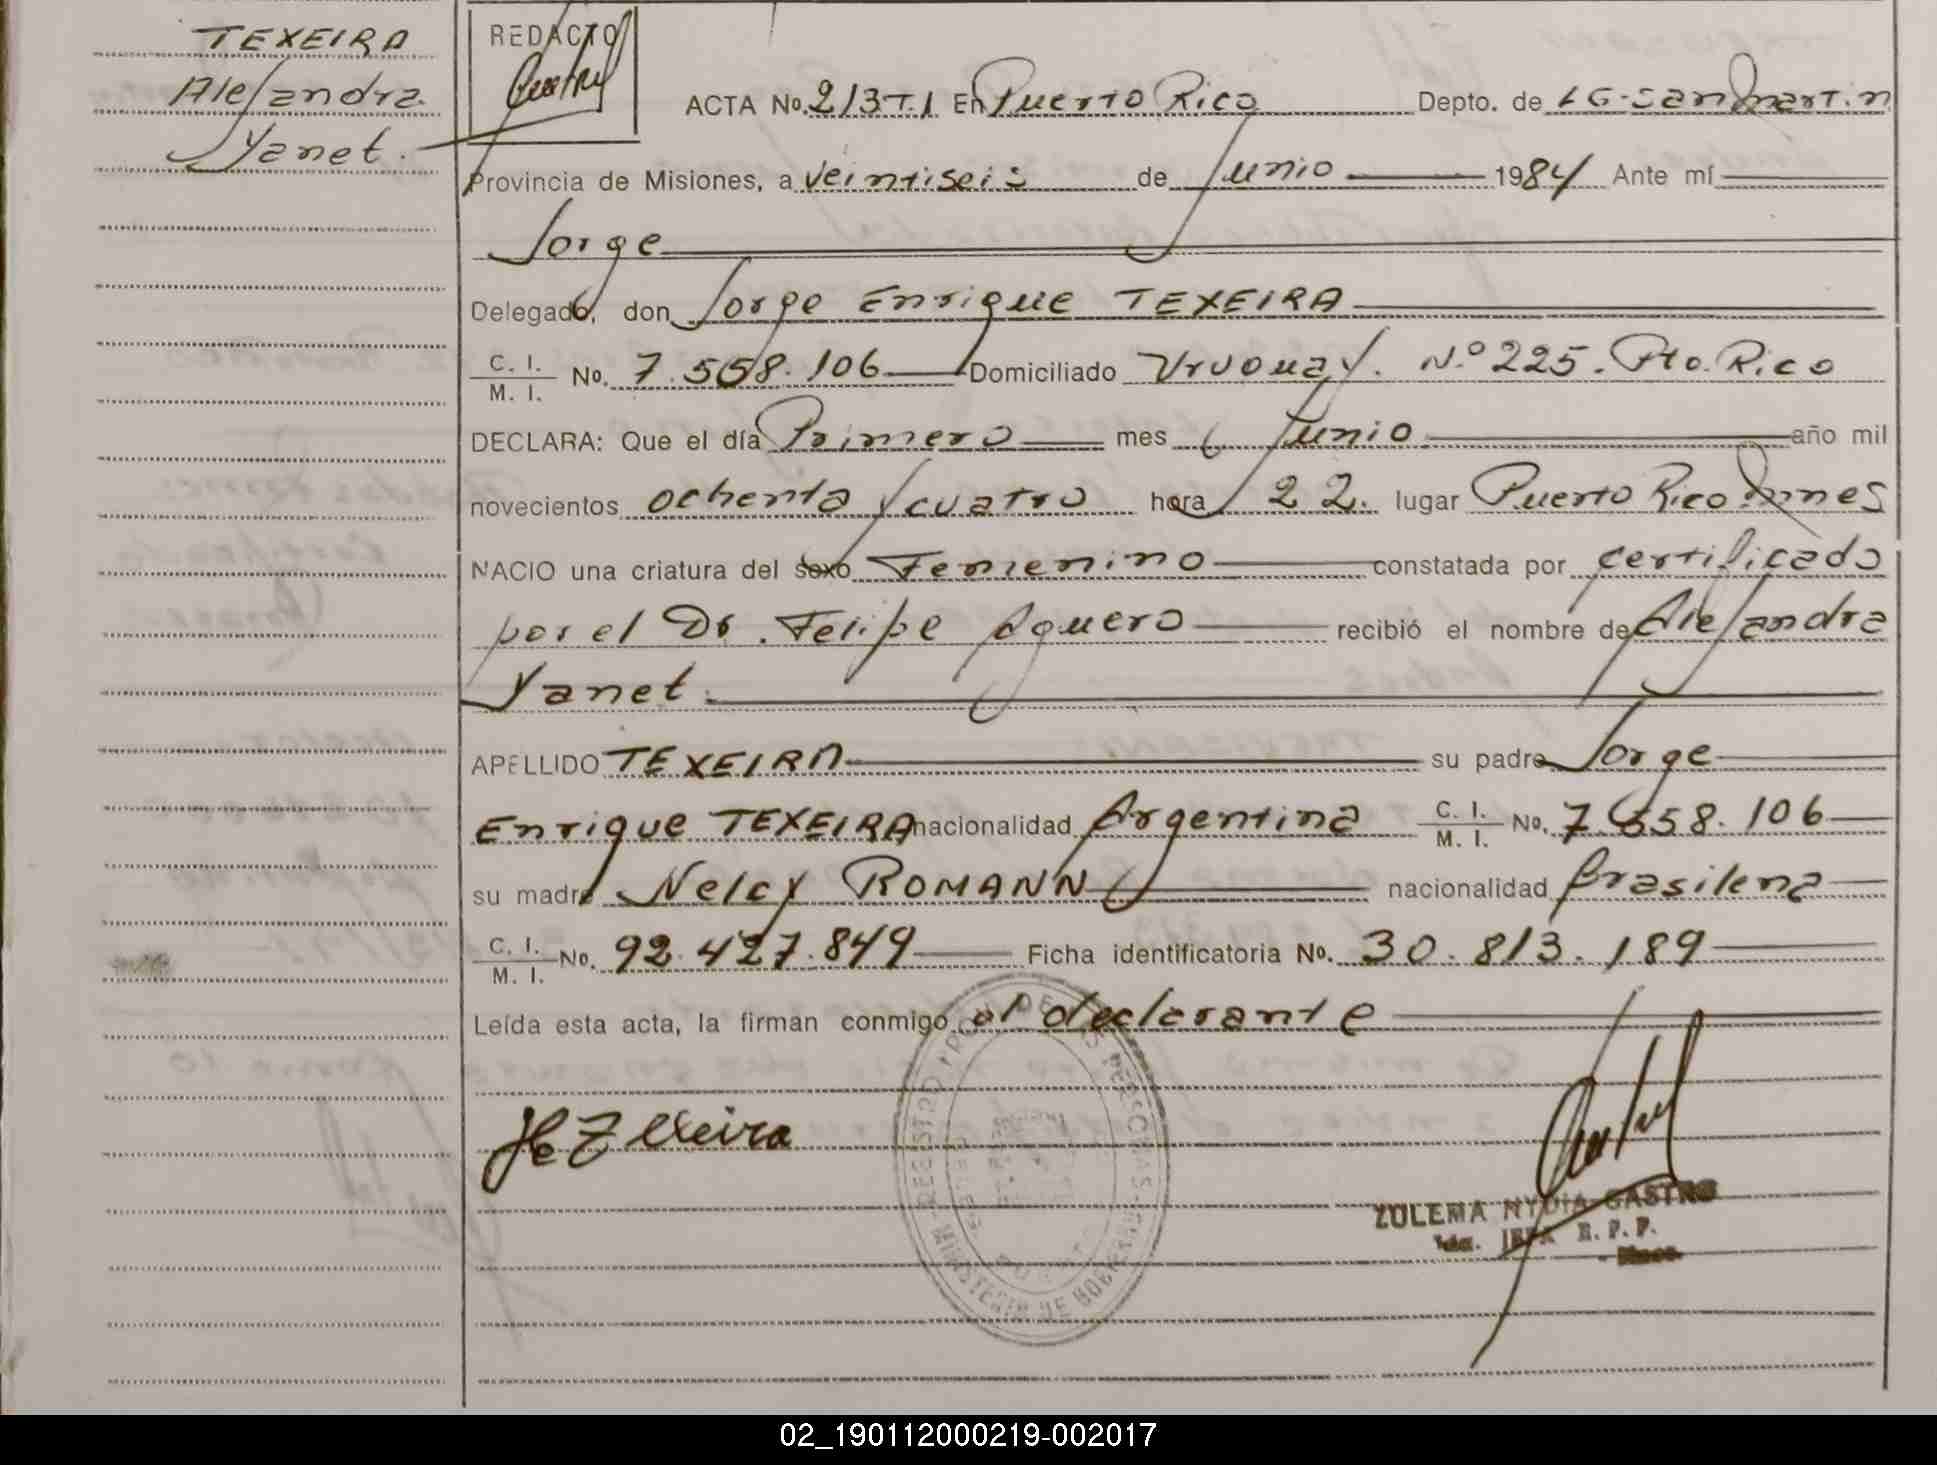 TEXEIRA
Alejandra
Yanet.
REDACTO
ACTA No. 213 T.I En Puerto Rico Depto. de LG. San Martin
Provincia de Misiones, a veintiseis de Junio 1984 Ante mí
Jorge
Delegado, don Jorge Enrique TEXEIRA
C. I. / M. I. No. 7.558.106 Domiciliado Uruguay. Nº 225. Pto. Rico
DECLARA: Que el día Primero mes Junio año mil
novecientos ochenta y cuatro hora 22. lugar Puerto Rico
NACIO una criatura del sexo Femenino constatada por certificado
por el Dr. Felipe Aguero recibió el nombre de Alejandra
Yanet.
APELLIDO TEXEIRA su padre Jorge
Enrique TEXEIRA nacionalidad Argentina C. I. / M. I. No. 7.558.106
su madre Nelcy ROMANN nacionalidad Brasilena
C. I. / M. I. No. 92.427.849 Ficha identificatoria No. 30.813.189
Leída esta acta, la firman conmigo el declarante
ZULEMA NYDIA CASTRO
JEFA R. P. P.
REGISTRO PROV. DE LAS PERSONAS
MINISTERIO DE GOBIERNO
02_190112000219-002017